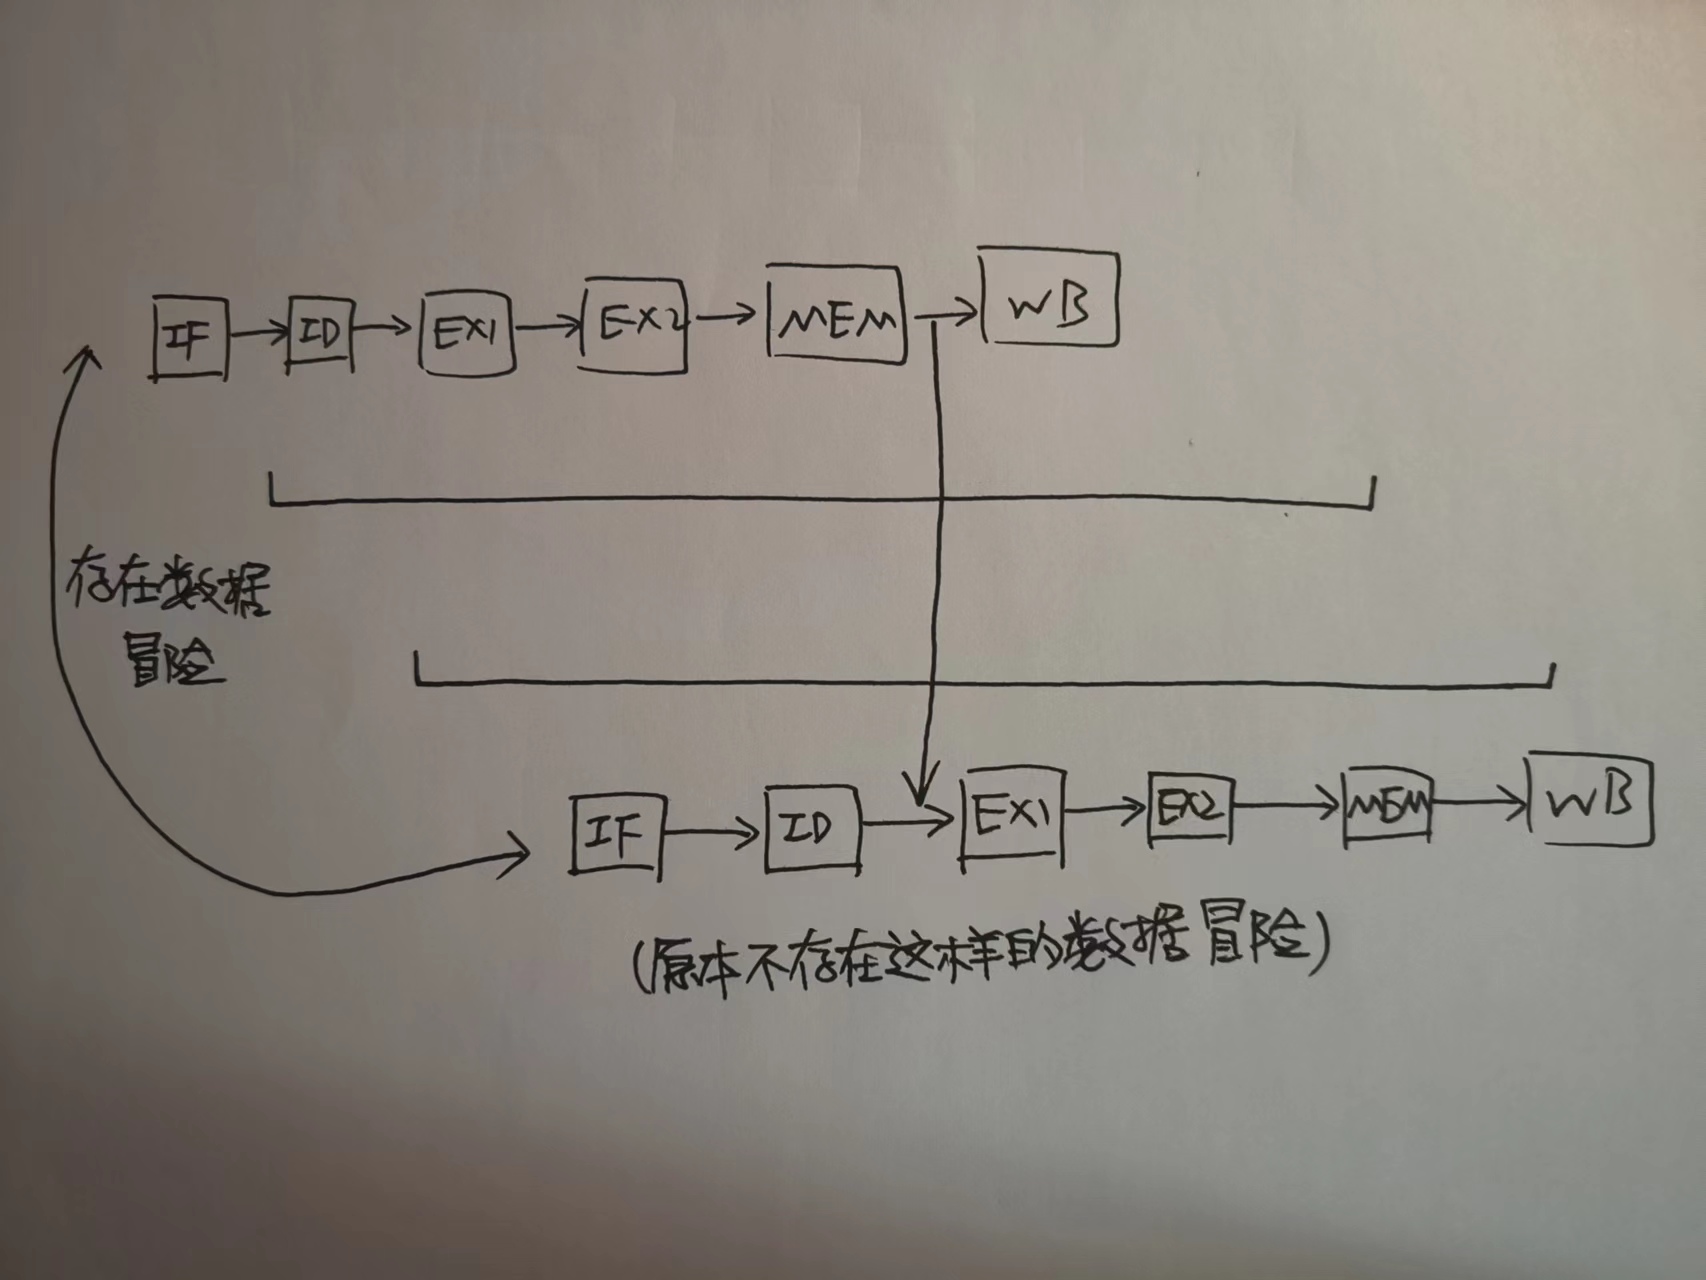 IF ID EX1 EX2 MEM WB
存在数据
冒险
IF ID EX1 EX2 MEM WB
(原本不存在这样的数据冒险)